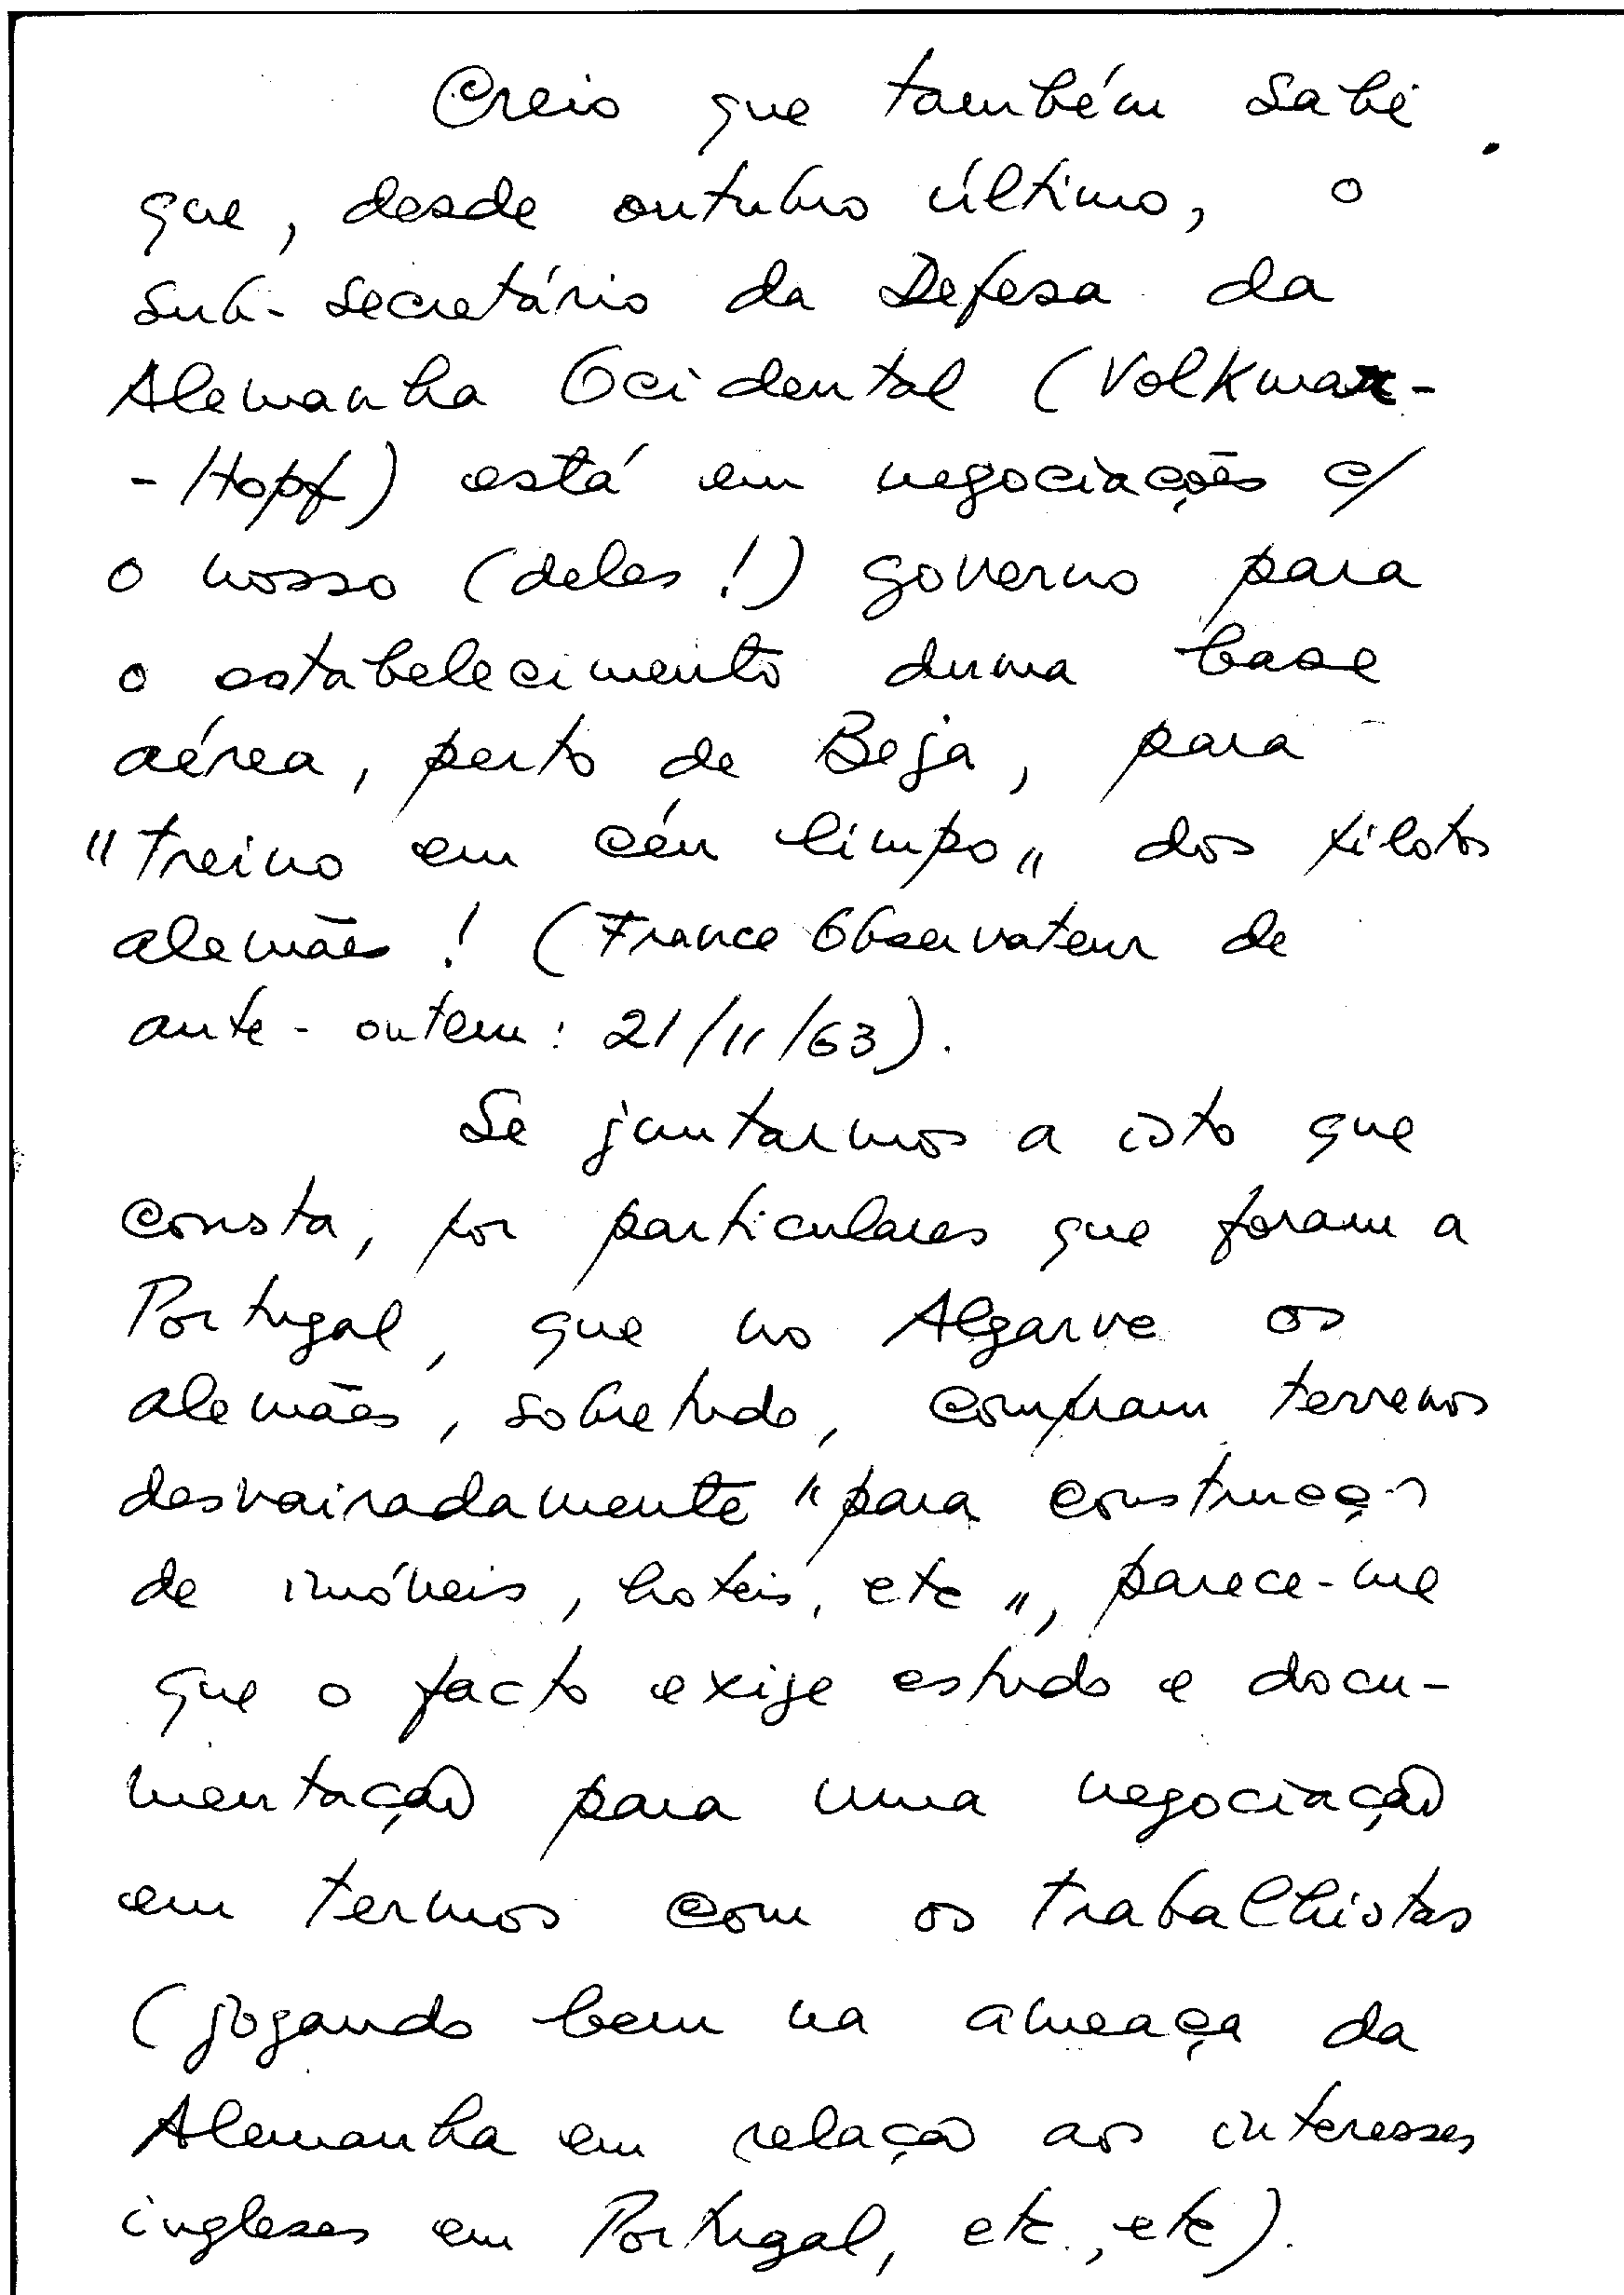 Creio que também sabe
que, desde outubro último, o
sub-secretário da Defesa da
Alemanha Ocidental (Volkmar-
-Hopf) está em negociações c/
o nosso (deles!) governo para
o estabelecimento duma base
aérea, perto de Beja, para
"treino em céu limpo" dos pilotos
alemães! (France Observateur de
ante-ontem: 21/11/63).
Se juntarmos a isto que
consta, por particulares que foram a
Portugal, que no Algarve os
alemães, sobretudo, compram terrenos
desvairadamente "para construção
de imóveis, hoteis, etc", parece-me
que o facto exige estudo e docu-
mentação para uma negociação
em termos com os trabalhistas
(jogando bem na ameaça da
Alemanha em relação aos interesses
ingleses em Portugal, etc., etc).